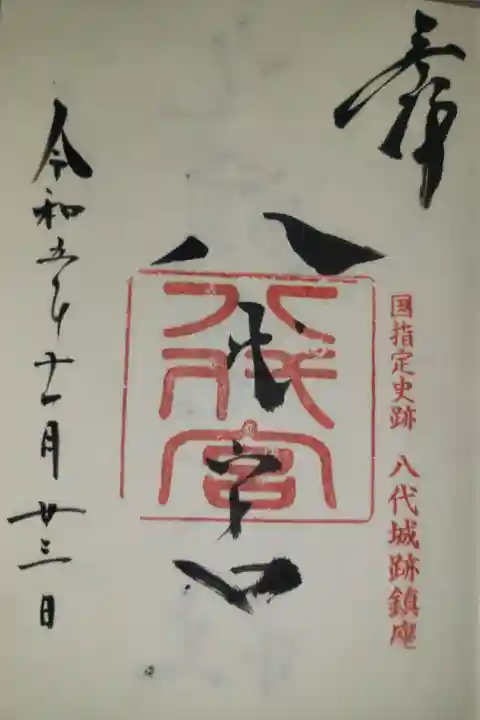 奉拝
国指定史跡 八代城跡鎮座
八代宮
八代宮
令和五年十一月廿三日